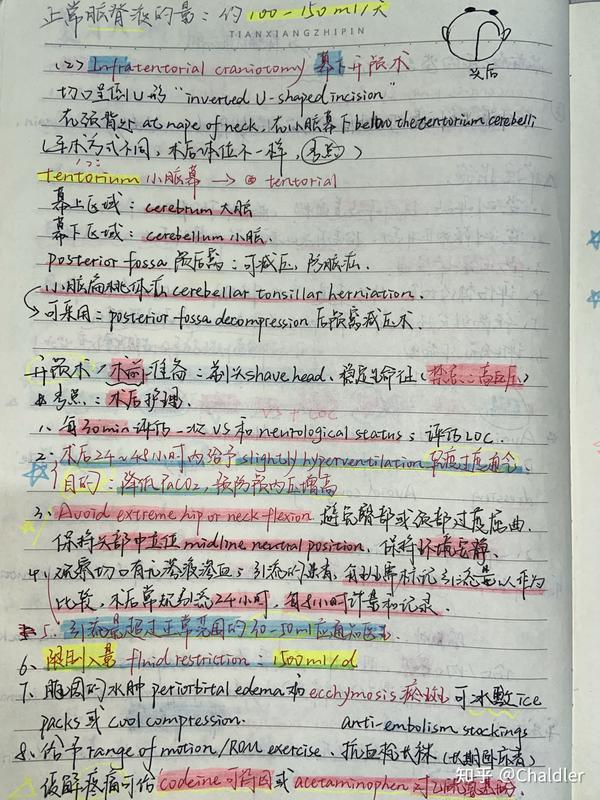 正常脑脊液的量：约100-150ml/天
TIANXIANGZHIPIN
头后
(2) Infratentorial craniotomy 幕下开颅术
切口呈倒U形 "inverted U-shaped incision"
在颈背处 at nape of neck, 在小脑幕下 below the tentorium cerebelli
(手术方式不同，术后体位不一样，考点)
tentorium 小脑幕 → tentorial
幕上区域：cerebrum 大脑
幕下区域：cerebellum 小脑.
posterior fossa 颅后窝：可减压，防脑疝.
小脑扁桃体疝 cerebellar tonsillar herniation.
可采用：posterior fossa decompression 后颅窝减压术.
开颅术：术前准备：剃头 shave head、稳定生命征 (禁忌：高血压)
考点：术后护理.
1、每30min评估一次VS和neurological status；评估LOC.
2、术后24~48小时内给予slightly hyperventilation 轻度过度通气
目的：降低PaCO₂，预防颅内压增高
3、Avoid extreme hip or neck flexion 避免臀部或颈部过度屈曲.
保持头部中立位 midline neutral position，保持环境安静.
4、观察切口有无渗液渗血；引流的患者，每班标记引流量以作为
比较，术后常规引流24小时，每8小时计算和记录.
5、引流量超过正常范围的30-50ml应通知医生.
6、限制入量 fluid restriction：1500ml/d
7、眼周的水肿 periorbital edema 和 ecchymosis 瘀斑 可冰敷 ice
packs 或 cool compression. anti-embolism stockings
8、给予range of motion/ROM exercise、抗血栓长袜 (长期卧床者)
缓解疼痛可给codeine可待因或acetaminophen对乙酰氨基酚.
知乎 @Chaldler